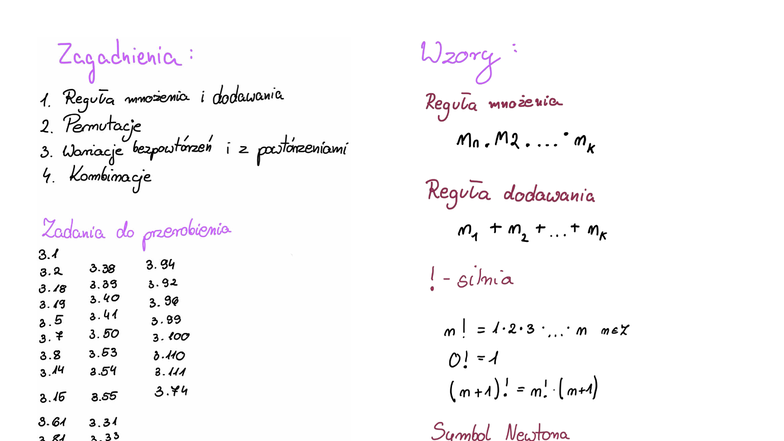 Zagadnienia :
1. Reguła mnożenia i dodawania
2. Permutacje
3. Wariacje bez powtórzeń i z powtórzeniami
4. Kombinacje
Zadania do przerobienia
3.1
3.2
3.18
3.19
3.5
3.7
3.8
3.14
3.15
3.61
3.81
3.38
3.39
3.40
3.41
3.50
3.53
3.54
3.55
3.31
3.33
3.94
3.92
3.96
3.99
3.100
3.110
3.111
3.74
Wzory :
Reguła mnożenia
n₁ · n₂ · ... · nₖ
Reguła dodawania
n₁ + n₂ + ... + nₖ
! - silnia
n! = 1·2·3 · ... · n n∈Z
0! = 1
(n+1)! = n! · (n+1)
Symbol Newtona